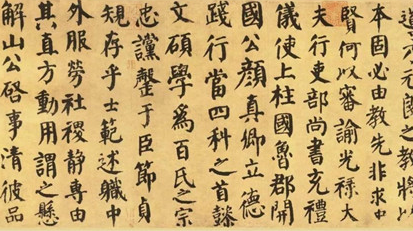 元良之教將以
本固必由教先非求
賢何以審諭光祿大
夫行吏部尚書充禮
儀使上柱國魯郡開
國公顏真卿立德
踐行當四科之首懿
文碩學為百氏之宗
忠讜罄于臣節貞
規存乎士範述職中
外服勞社稷靜專由
其直方動用謂之懸
解山公啓事清彼品